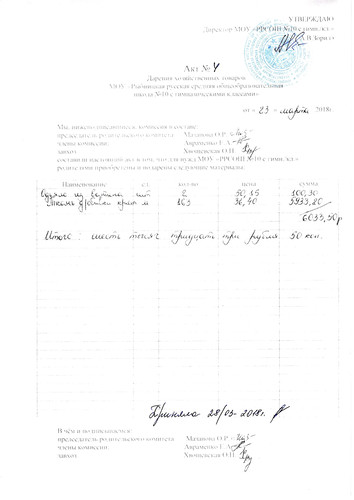 УТВЕРЖДАЮ
Директор МОУ «РРСОШ №10 с гимн.кл.»
Акт № 4
Дарения хозяйственных товаров
МОУ «Рыбницкая русская средняя общеобразовательная
школа №10 с гимназическими классами»
от « 23 » марта 2018г.
Мы, нижеподписавшиеся, комиссия в составе:
председатель родительского комитета
члены комиссии:
завхоз
составили настоящий акт в том, что для нужд МОУ «РРСОШ №10 с гимн.кл.»
родителями приобретены и подарены следующие материалы:
Наименование кол-во цена сумма
шт 2 50,15 100,30
ткань м 163 36,40 5933,20
6033,50р
Итого: шесть тысяч тридцать три рубля 50 коп.
Приняла 28/03-2018г.
В чём и подписываемся:
председатель родительского комитета
члены комиссии:
завхоз